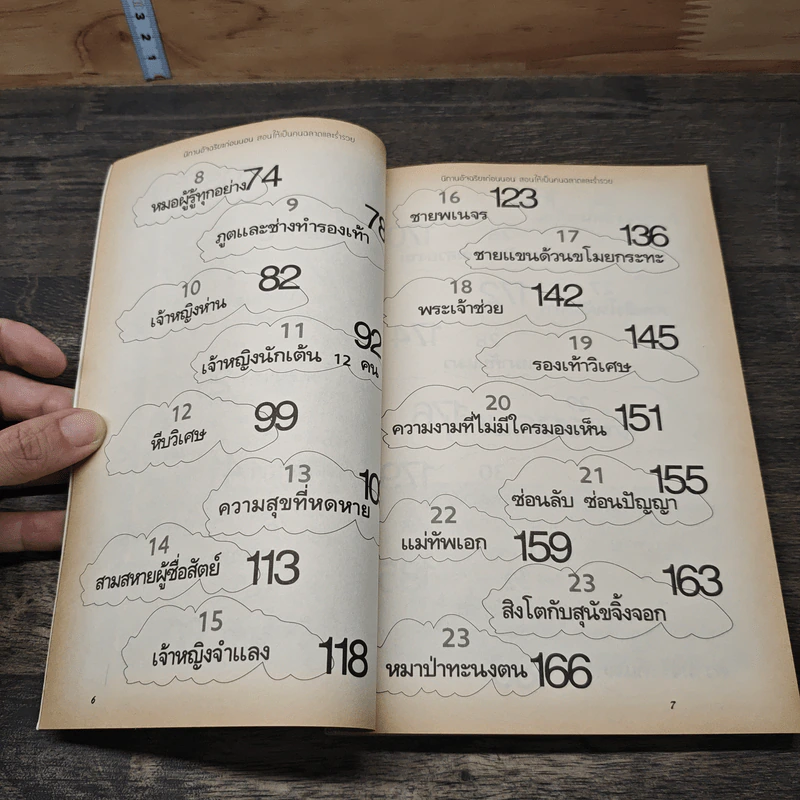 3
2
1
นิทานอัจฉริยะก่อนนอน สอนให้เป็นคนฉลาดและร่ำรวย
8
หมอผู้รู้ทุกอย่าง 74
9
ภูตและช่างทำรองเท้า 78
10
เจ้าหญิงห่าน 82
11
เจ้าหญิงนักเต้น 12 คน 92
12
หีบวิเศษ 99
13
ความสุขที่หดหาย 10
14
สามสหายผู้ซื่อสัตย์ 113
15
เจ้าหญิงจำแลง 118
6
นิทานอัจฉริยะก่อนนอน สอนให้เป็นคนฉลาดและร่ำรวย
16
ชายพเนจร 123
17
ชายแขนด้วนขโมยกระทะ 136
18
พระเจ้าช่วย 142
19
รองเท้าวิเศษ 145
20
ความงามที่ไม่มีใครมองเห็น 151
21
ซ่อนลับ ซ่อนปัญญา 155
22
แม่ทัพเอก 159
23
สิงโตกับสุนัขจิ้งจอก 163
23
หมาป่าทะนงตน 166
7